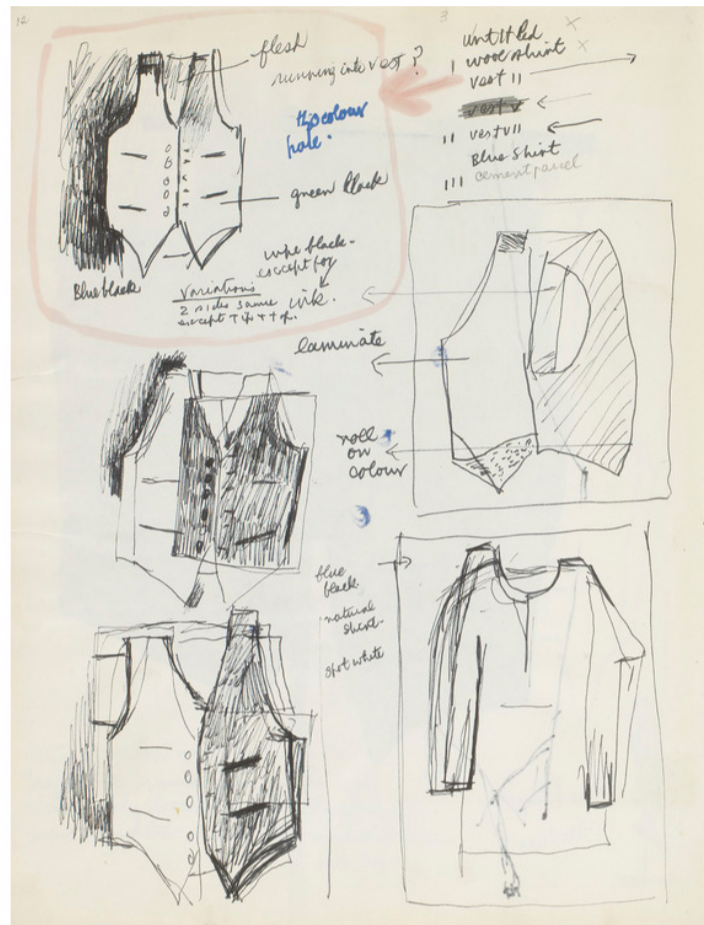 12
3
flesh
running into vest?
this colour
pale.
green black
wipe black -
except for
ink.
Blue black
Variations
2 sides same
except tips + top.
untitled
I wool shirt
vest II
vest V
II vest VII
Blue Shirt
III cement parcel
laminate
roll
on
colour
blue
black.
natural
shirt.
spot white